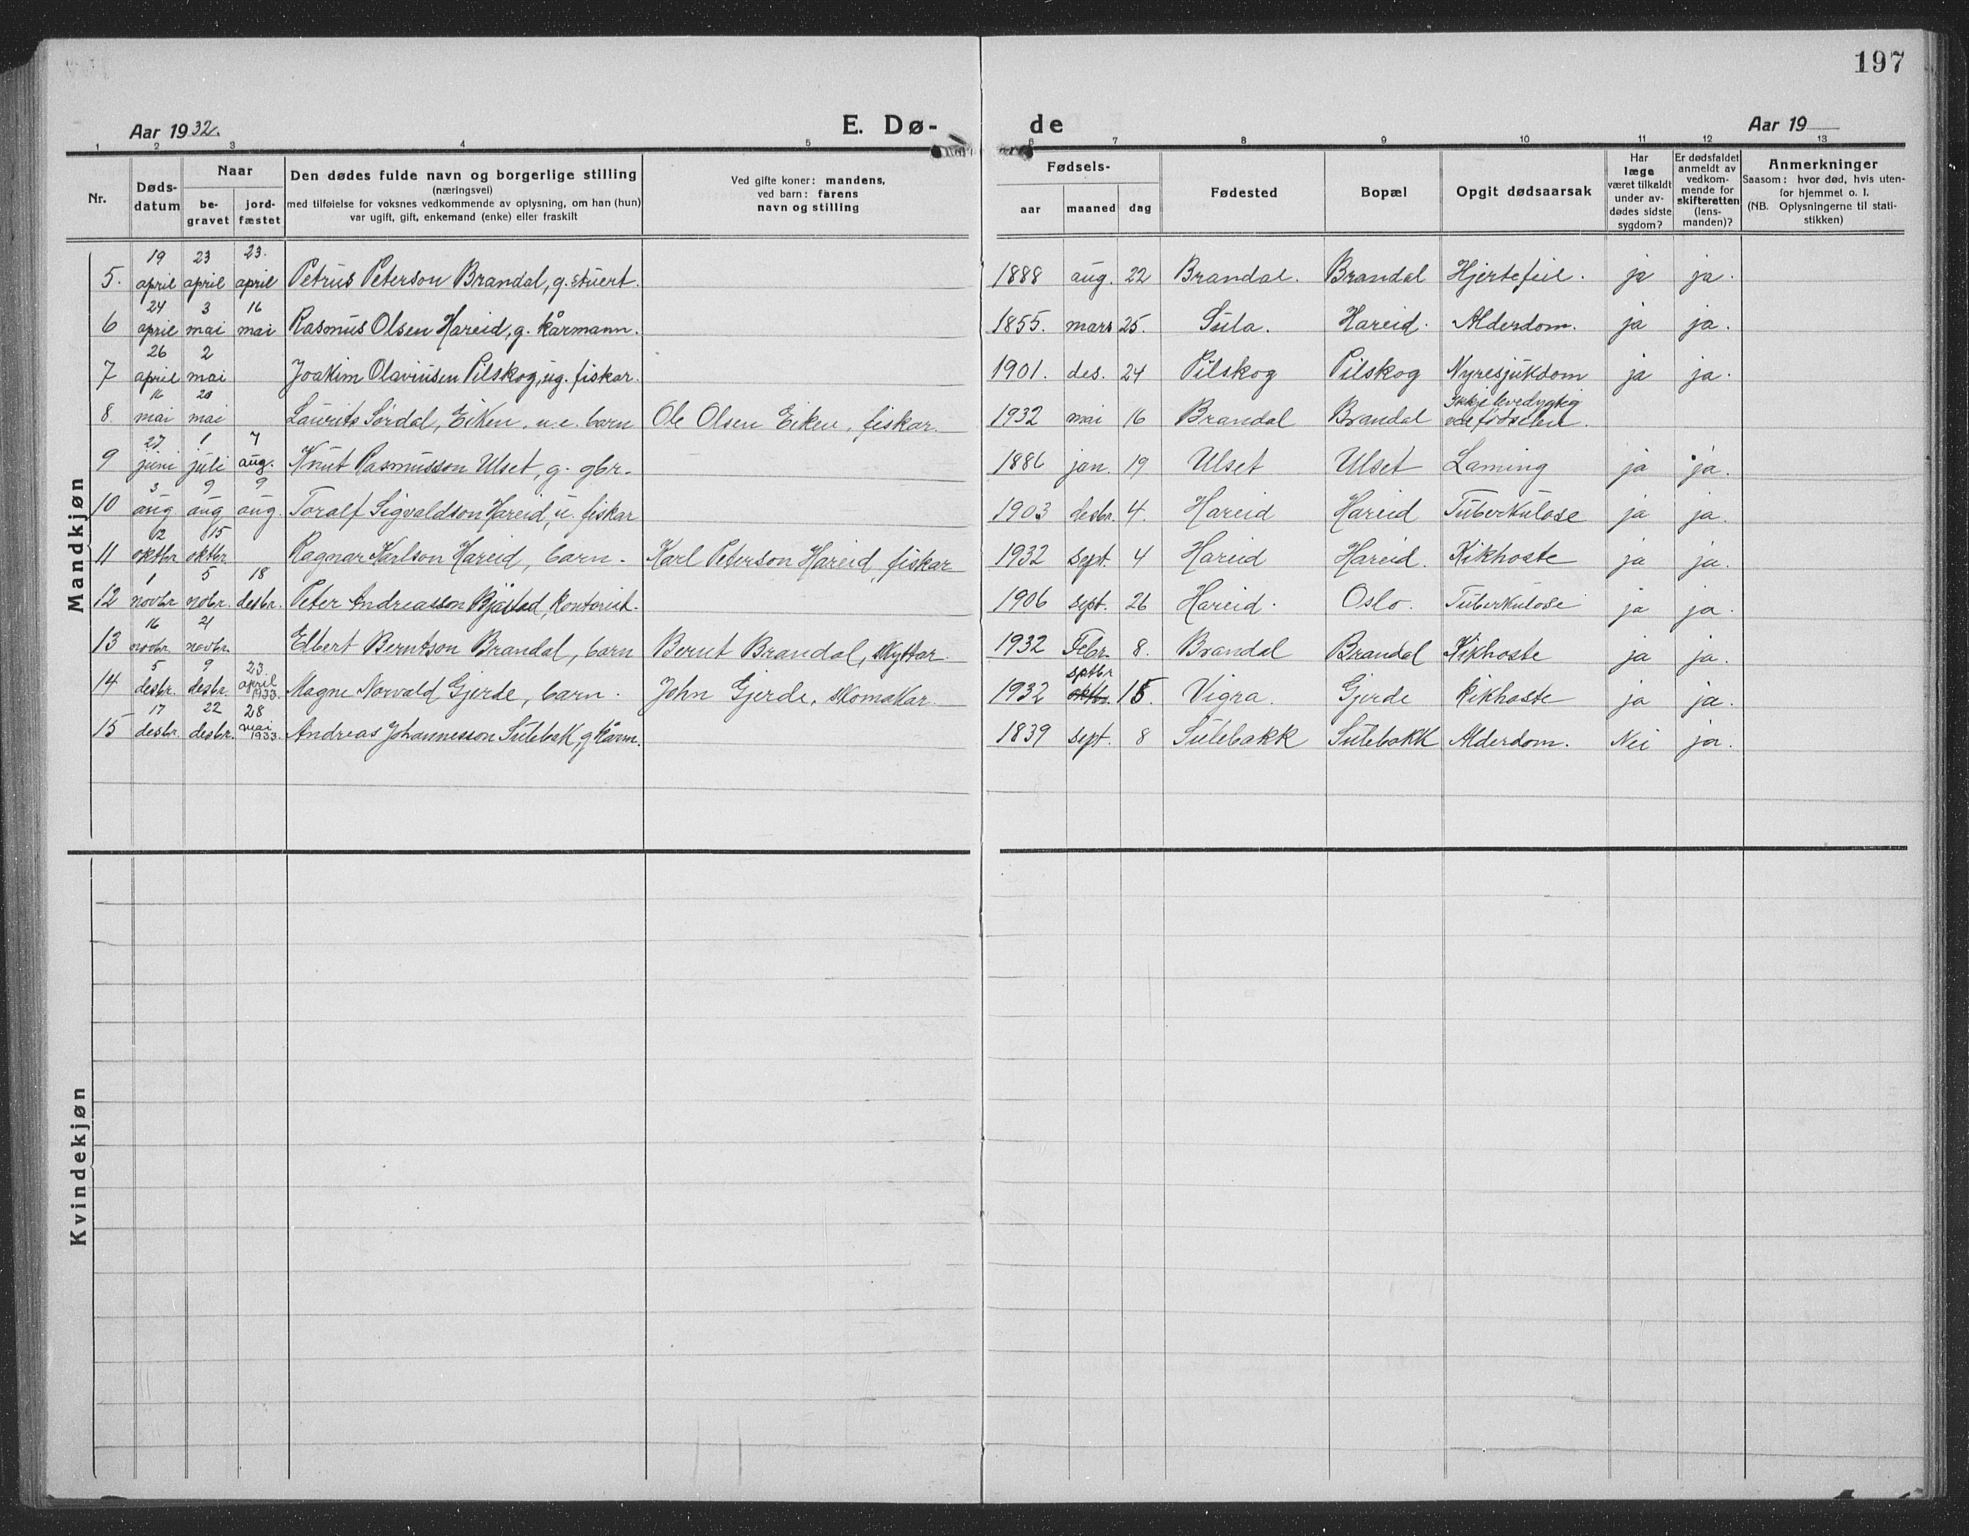 197
Aar 1932.
E. Dø-
de
Aar 19
1 2 3 4 5 6 7 8 9 10 11 12 13
Nr.
Døds-
datum
Naar
be-
gravet
jord-
fæstet
Den dødes fulde navn og borgerlige stilling
(næringsvei)
med tilføielse for voksnes vedkommende av oplysning, om han (hun)
var ugift, gift, enkemand (enke) eller fraskilt
Ved gifte koner: mandens,
ved barn: farens
navn og stilling
Fødsels-
aar maaned dag
Fødested
Bopæl
Opgit dødsaarsak
Har
læge
været tilkaldt
under av-
dødes sidste
sygdom?
Er dødsfaldet
anmeldt av
vedkom-
mende for
skifteretten
(lens-
manden)?
Anmerkninger
Saasom: hvor død, hvis uten-
for hjemmet o. l.
(NB. Oplysningerne til stati-
stikken)
Mandkjøn
19 23 23.
5. april april april Petrus Peterson Brandal, g. stuert. 1888 aug. 22 Brandal. Brandal Hjertefeil. ja ja.
24 3 16
6 april mai mai Rasmus Olsen Hareid, g. kårmann. 1855. mars 25. Sula. Hareid. Alderdom. ja ja.
26 2
7 april mai Joakim Olaviusen Pilskog, ug. fiskar. 1901. des. 24 Pilskog Pilskog Nyresjukdom ja ja.
16 20 Ikkje levedygtig
8. mai mai Laurits Sørdal, Eiken. u.e. barn Ole Olsen Eiken, fiskar. 1932 mai 16 Brandal Brandal ved fødselen.
27 1 7
9 juni juli aug. Knut Rasmusson Ulset, g. gbr. 1886 jan. 19 Ulset Ulset Laming ja ja.
3 9 9
10 aug aug aug. Toralf Sigvaldson Hareid, u. fiskar 1903 desbr. 4. Hareid Hareid Tuberkulose ja ja.
12 15
11 oktbr oktbr. Ragnar Karlson Hareid, barn. Karl Peterson Hareid, fiskar 1932 sept. 4 Hareid Hareid. Kikhoste ja ja.
1 5 18
12 novbr nobr. desbr. Peter Andreasson Bjåstad, kontorist. 1906 sept. 26 Hareid. Oslo. Tuberkulose ja ja.
16 21
13 novbr novbr. Elbert Berntson Brandal, barn Bernt Brandal, skyttar. 1932 Febr. 8. Brandal Brandal Kikhoste ja ja.
5 9 23. april 1933. sptbr
14 desbr. desbr. Magne Norvald Gjerde, barn. John Gjerde, skomakar. 1932 oktbr. 15 Vigra. Gjerde Kikhoste ja ja.
17 22 28 mai 1933.
15 desbr. desbr. Andreas Johannesson Sulebak, g kårm. 1839 sept. 8 Sulebakk Sulebakk Alderdom. Nei ja.
Kvindekjøn